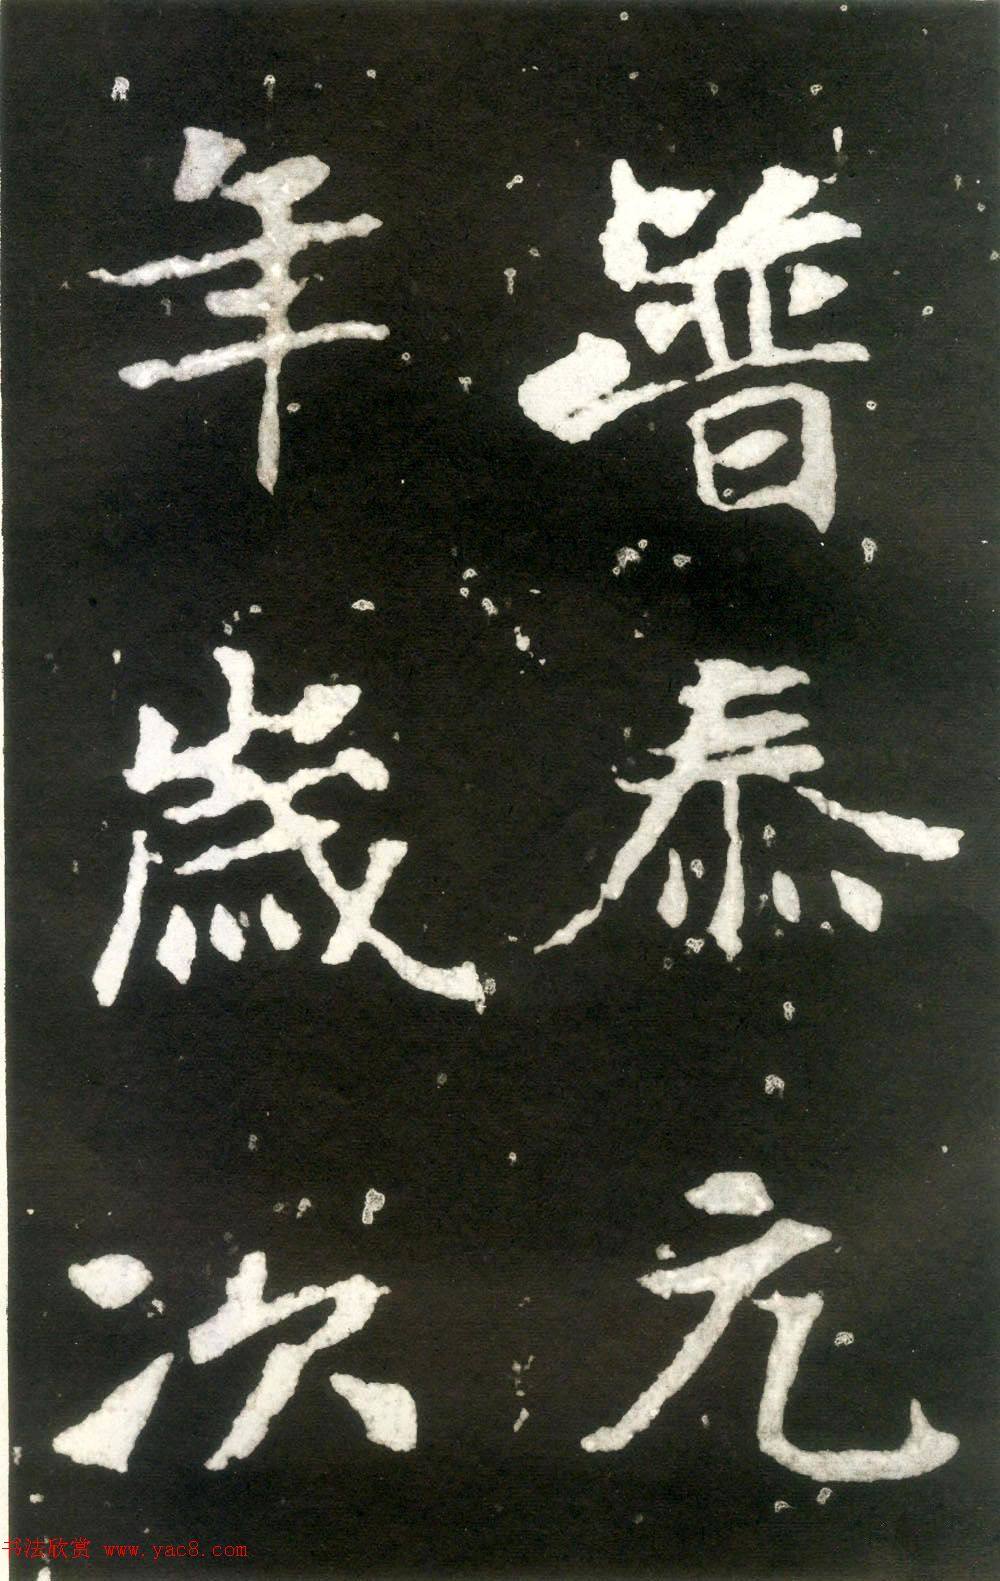 普泰元
年歲次
书法欣赏 www.yac8.com